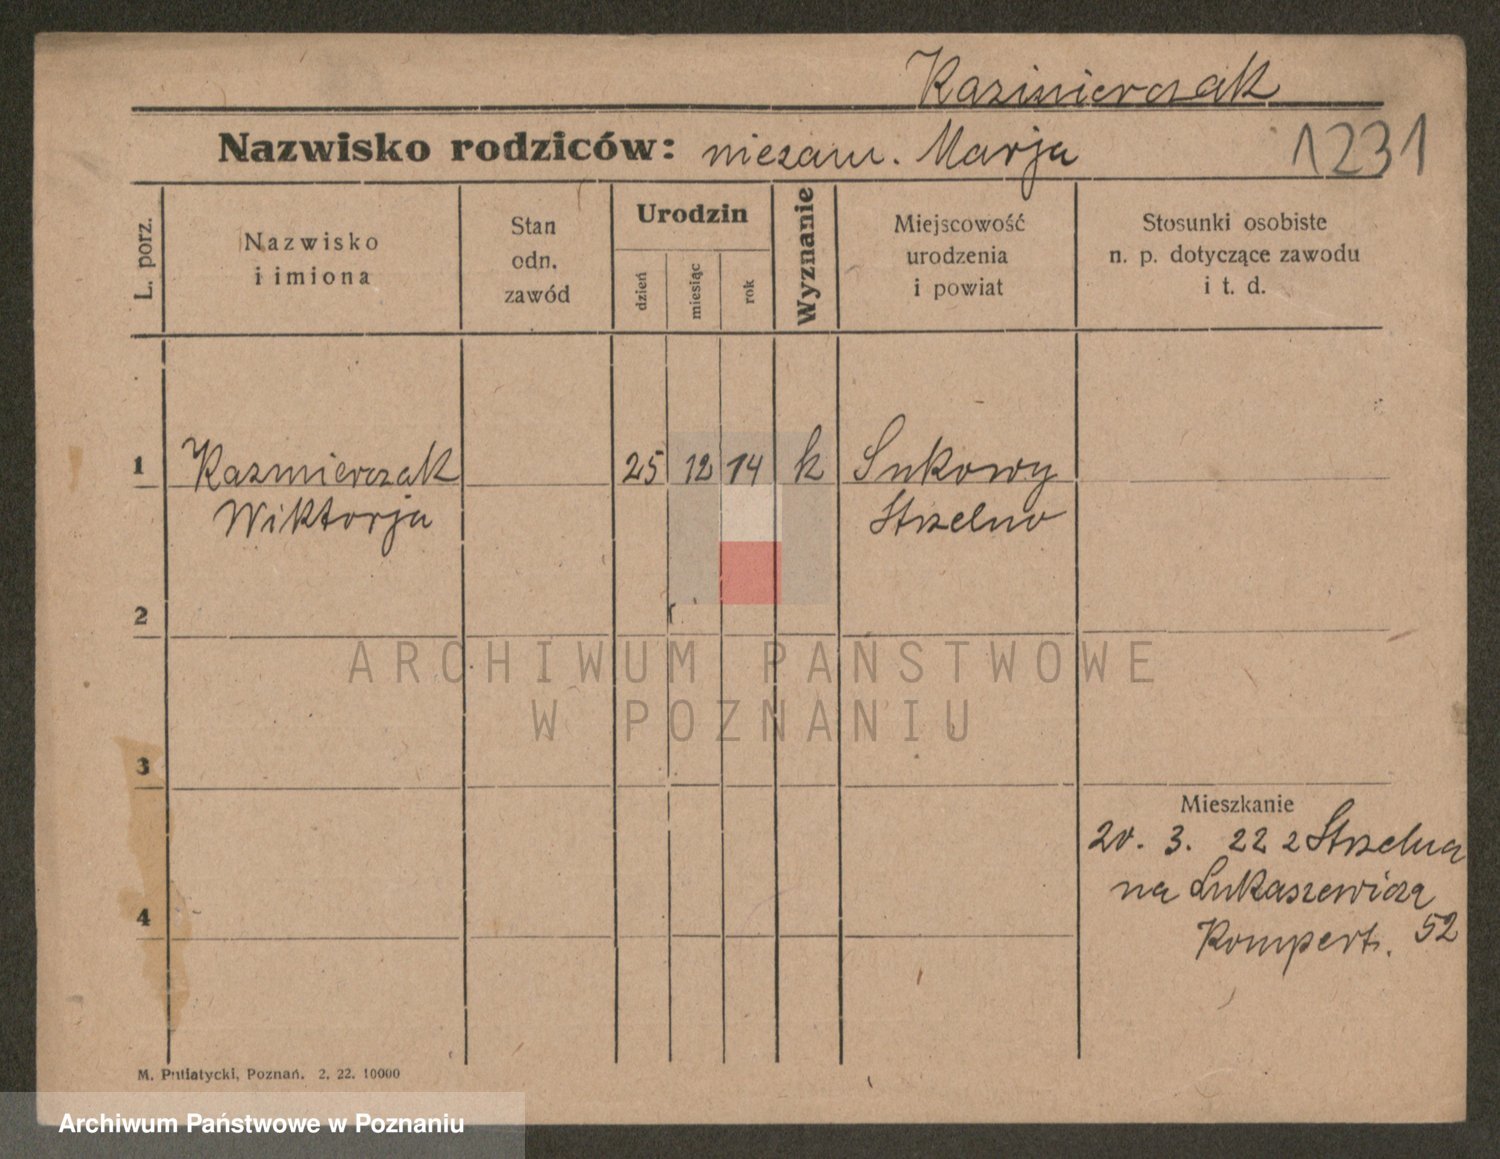 Kazimierczak
Nazwisko rodziców: niezam. Marja
1231
L. porz.
Nazwisko
i imiona
Stan
odn.
zawód
Urodzin
dzień
miesiąc
rok
Wyznanie
Miejscowość
urodzenia
i powiat
Stosunki osobiste
n. p. dotyczące zawodu
i t. d.
1 Kazmierczak 25 12 14 k Sukowy
Wiktorja Strzelno
2
ARCHIWUM PAŃSTWOWE
W POZNANIU
3
Mieszkanie
20. 3. 22 z Strzelna
na Łukaszewicza
4
Kompert. 52
M. Putiatycki, Poznań. 2. 22. 10000
Archiwum Państwowe w Poznaniu